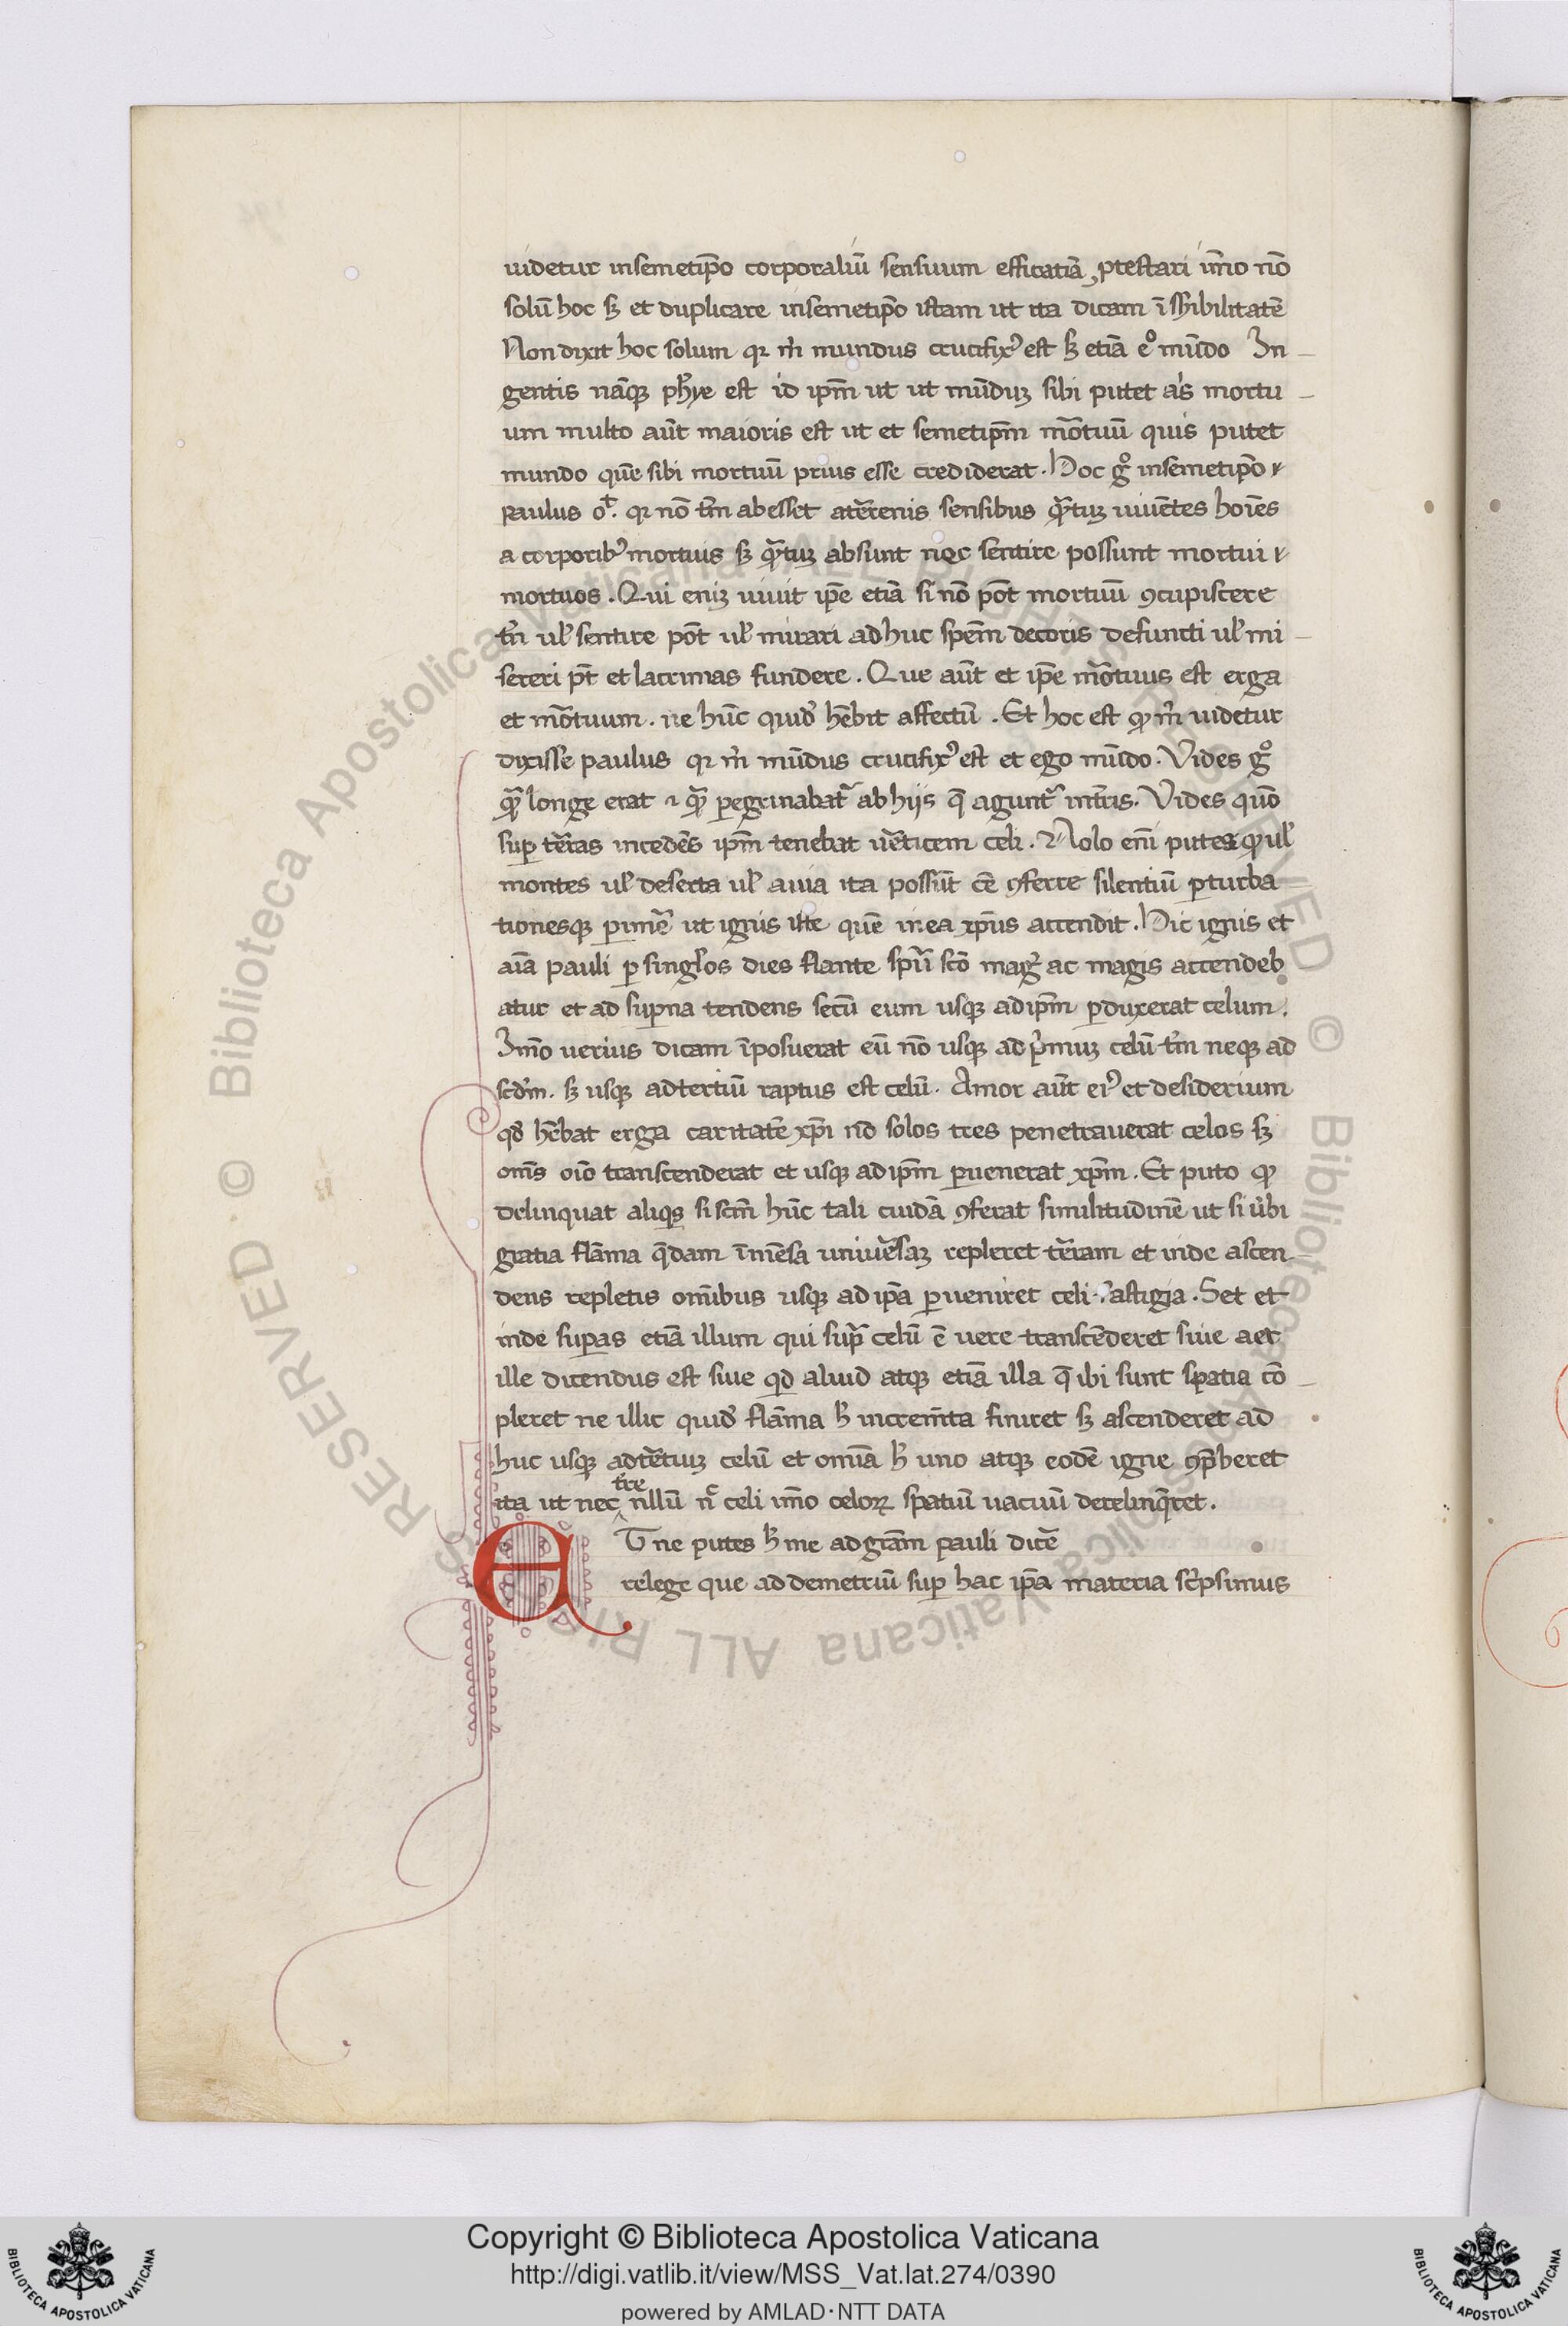 uidetur insemetip̄o corporaliū sensuum efficatiā p̱testari īmo nō
solū hoc sȝ et duplicare insemetip̄o istam ut ita dicam ī s̄sibilitatē
Non dixit hoc solum qr m̄ mundus crucifixꝰ est sȝ etiā eͦ mūdo In
gentis nāqȝ ph̄ye est id ip̄m ut ut mūduȝ sibi putet a͛s mortu
um multo aūt maioris est ut et semetip̄m mo͛tuū quis putet
mundo quē sibi mortuū prius esse crediderat. Hoc gͦ insemetip̄o
paulus qr nō tm̄ abesset ate͛renis sensibus qͣ̄tuȝ uiuētes hoīes
a corporibꝰ mortuis sȝ qͣ̄tuȝ absunt nec sentire possunt mortui
mortuos. Qui eniȝ uiuit ip̄e etiā si nō pōt mortuū ꝯcupiscere
tn̄ ul̓ sentire pōt ul̓ mirari adhuc spēm decoris defuncti ul̓ mi
sereri pt̄ et lacrimas fundere. Que aūt et ip̄e mo͛tuus est erga
et mo͛tuum. ne hūc quid̓ hēbit affectū. Et hoc est qͥ m̄ uidetur
dixisse paulus qr m̄ mūdus crucifixꝰ est et ego mūdo. Vides gͦ
qͣ̄ longe erat ⁊ qͣ̄ ꝑegrinabat͛ ab hijs q̄ agunt͛ int͛ris. Vides quō
suꝑ te͛ras incedēs ip̄m tenebat ue͛ticem celi. Nolo enī putes qͥ ul̓
montes ul̓ deserta ul̓ auia ita possūt cē ꝯferre silentiū ꝑturba
tionesqȝ ꝑime͛ ut ignis ille quē in ea xp̄us accendit. Hic ignis et
aīa pauli ꝑ singl̓os dies flante sp̄u scō mag̓ ac magis accendeb
atur et ad suꝑna tendens secū eum usqȝ adip̄m ꝑduxerat celum.
Imo uerius dicam īposuerat eū nō usqȝ ad pͥmuȝ celū tm̄ neqȝ ad
scd̄m. sȝ usqȝ adtertiū raptus est celū. Amor aūt eiꝰ et desiderium
qd̓ hēbat erga caritatē xp̄i nō solos tres penetrauerat celos sȝ
om̄s oīo transcenderat et usqȝ adip̄m ꝑuenerat xp̄m. Et puto qͥ
delinquat aliqͥs si scm̄ hūc tali cuidā ꝯferat similitudinē ut si u͛bi
gratia flāma q̄dam īmēsa uniue͛saȝ repleret te͛ram et inde ascen
dens repletis om̄ibus usqȝ ad ip̄a ꝑueniret celi fastigia. Set et
inde suꝑas etiā illum qui supͣ celū ē uere transcēderet siue aer
ille dicendus est siue qͥd aliud atqȝ etiā illa q̄ ibi sunt spatia cō
pleret ne illic quid̓ flāma h̄ increm̄ta finiret sȝ ascenderet ad
huc usqȝ adte͛tiuȝ celū et omīa h̄ uno atqȝ eodē igne ꝯp̄beret
ita ut nec t͛re nllū n̄c celi īmo celoꝝ spatiū uacuū derelinq͛ret.
ET ne putes h̄ me ad grām pauli dice͛
relege que ad demetriū suꝑ hac ip̄a materia scͥpsimus
Copyright © Biblioteca Apostolica Vaticana
http://digi.vatlib.it/view/MSS_Vat.lat.274/0390
powered by AMLAD·NTT DATA
© Biblioteca Apostolica Vaticana ALL RIGHTS RESERVED © Biblioteca Apostolica Vaticana ALL RIGHTS RESERVED
BIBLIOTECA APOSTOLICA VATICANA
BIBLIOTECA APOSTOLICA VATICANA